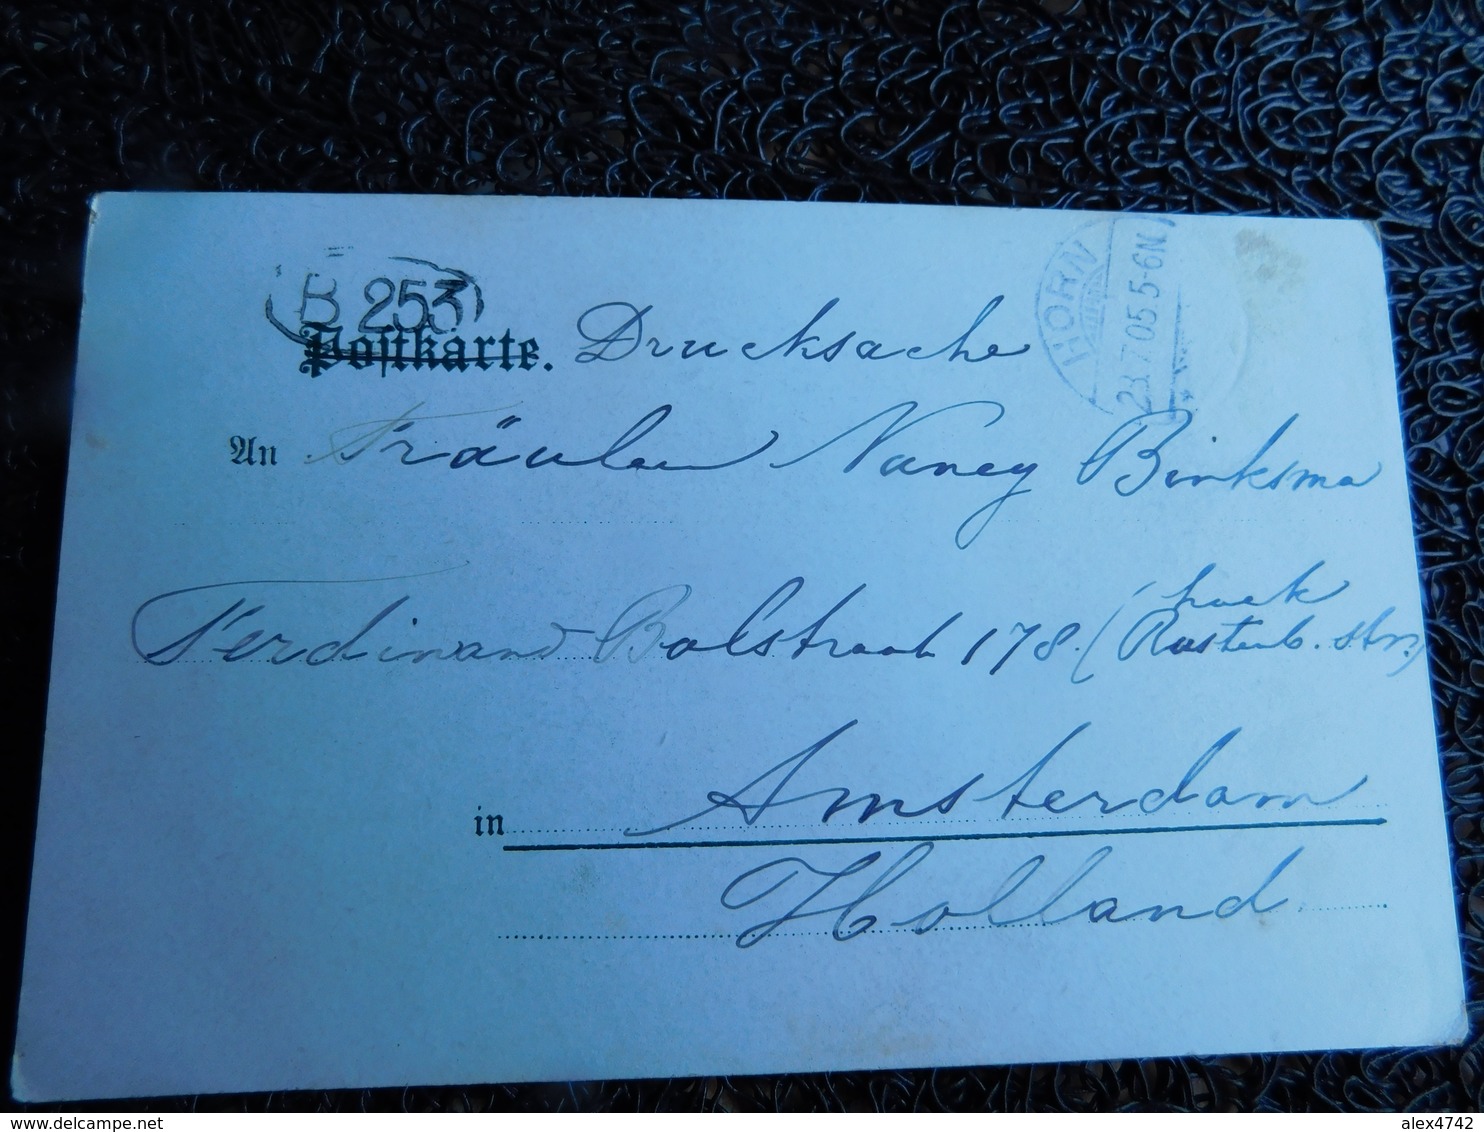 B 253
Postkarte. Drucksache
HORN
23.7.05.5-6N
An Fräulein Nancy Binksma
Ferdinand Bolstraat 178. (hoek
Rustenb. str.)
in Amsterdam
Holland
delcampe.net
alex4742